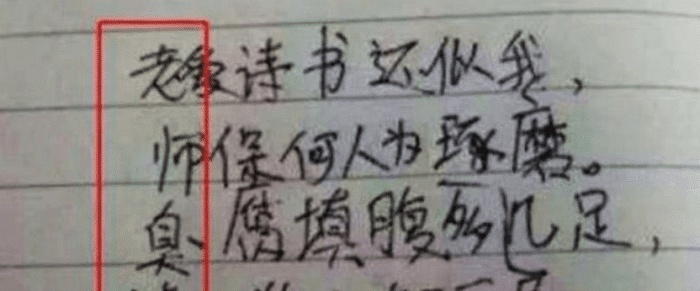 老爱诗书还似我,
师保何人为琢磨。
臭腐填腹多几足,